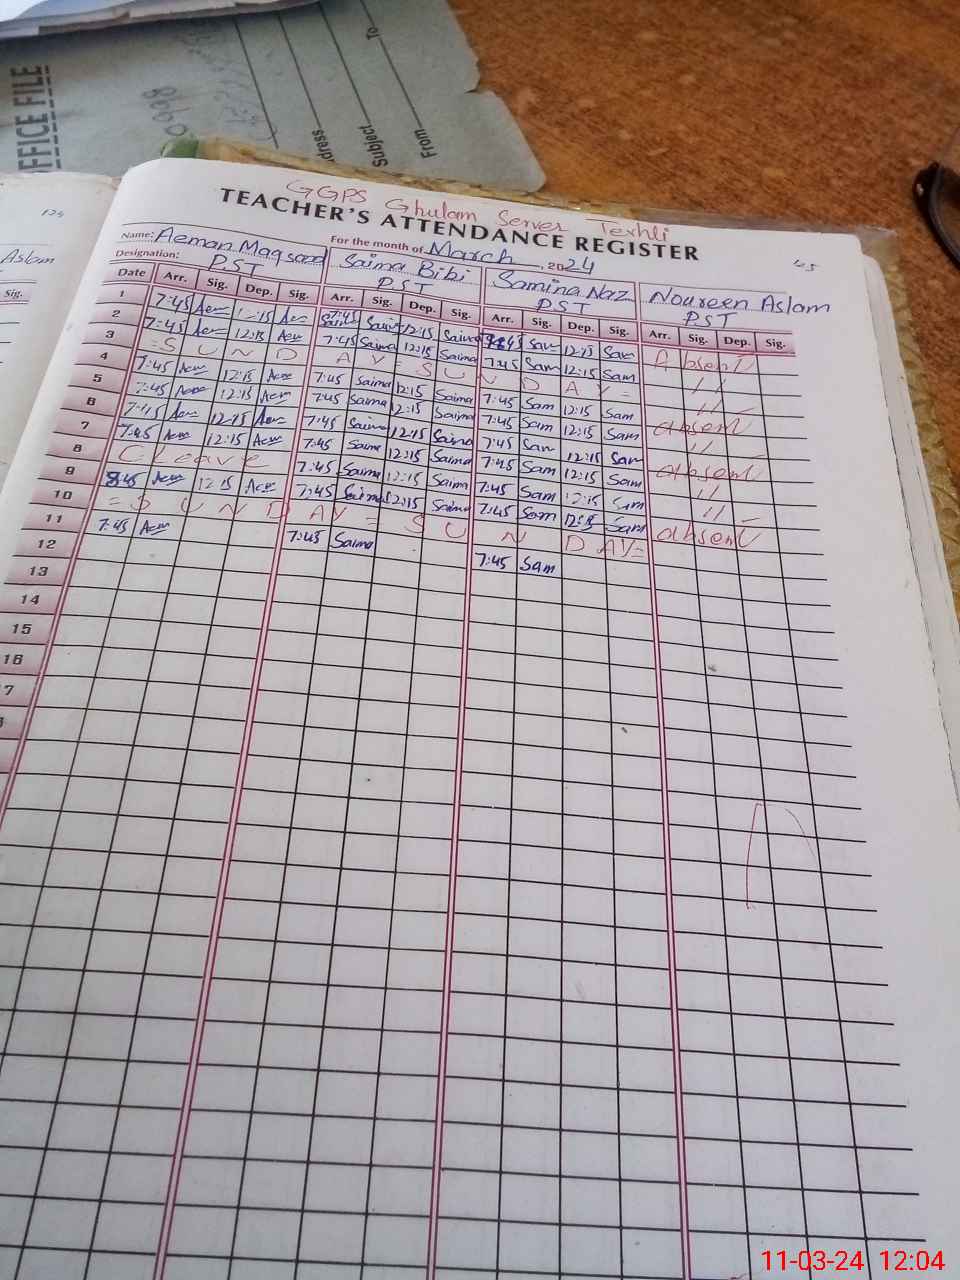 OFFICE FILE
0998
dress
Subject
From
To
125
Aslam
Sig.
GGPS Ghulam Server Terhli
TEACHER'S ATTENDANCE REGISTER
Name: Aeman Maqsood For the month of March, 2024
Designation: PST Saima Bibi PST Samina Naz PST Noureen Aslam PST
Date Arr. Sig. Dep. Sig. Arr. Sig. Dep. Sig. Arr. Sig. Dep. Sig. Arr. Sig. Dep. Sig.
1 7:45 Aem 12:15 Aem 7:45 Saima 12:15 Saima 7:45 Sam 12:15 Sam Absent
2 7:45 Aem 12:15 Aem 7:45 Saima 12:15 Saima 7:45 Sam 12:15 Sam //
3 = S U N D A Y = S U N D A Y = //
4 7:45 Aem 12:15 Aem 7:45 Saima 12:15 Saima 7:45 Sam 12:15 Sam absent
5 7:45 Aem 12:15 Aem 7:45 Saima 12:15 Saima 7:45 Sam 12:15 Sam //
6 7:45 Aem 12:15 Aem 7:45 Saima 12:15 Saima 7:45 Sam 12:15 Sam absent
7 7:45 Aem 12:15 Aem 7:45 Saima 12:15 Saima 7:45 Sam 12:15 Sam //
8 C leave 7:45 Saima 12:15 Saima 7:45 Sam 12:15 Sam //
9 7:45 Aem 12:15 Aem 7:45 Saima 12:15 Saima 7:45 Sam 12:15 Sam absent
10 = S U N D A Y = S U N D A Y =
11 7:45 Aem 7:45 Saima 7:45 Sam
12
13
14
15
16
7
11-03-24 12:04